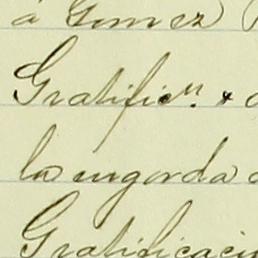 á Gomez
Gratificn. &
la engorda
Gratificació